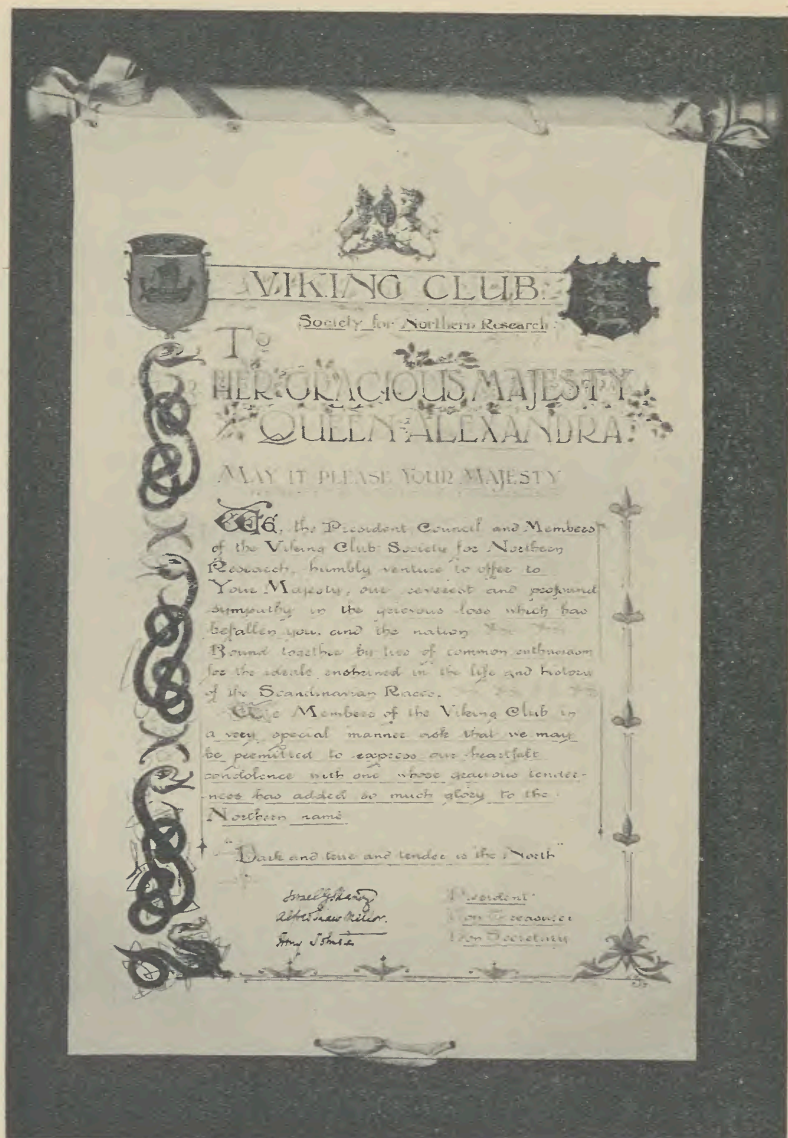 VIKING CLUB
Society for Northern Research
To
HER GRACIOUS MAJESTY
QUEEN ALEXANDRA
MAY IT PLEASE YOUR MAJESTY
We, the President Council and Members
of the Viking Club Society for Northern
Research, humbly venture to offer to
Your Majesty, our reverent and profound
sympathy in the grievous loss which has
befallen you, and the nation
Bound together by ties of common enthusiasm
for the ideals enshrined in the life and history
of the Scandinavian Races.
We Members of the Viking Club in
a very special manner ask that we may
be permitted to express our heartfelt
condolence with one whose gracious tender-
ness has added so much glory to the
Northern name
"Dark and true and tender is the North"
President
Hon Treasurer
Hon Secretary